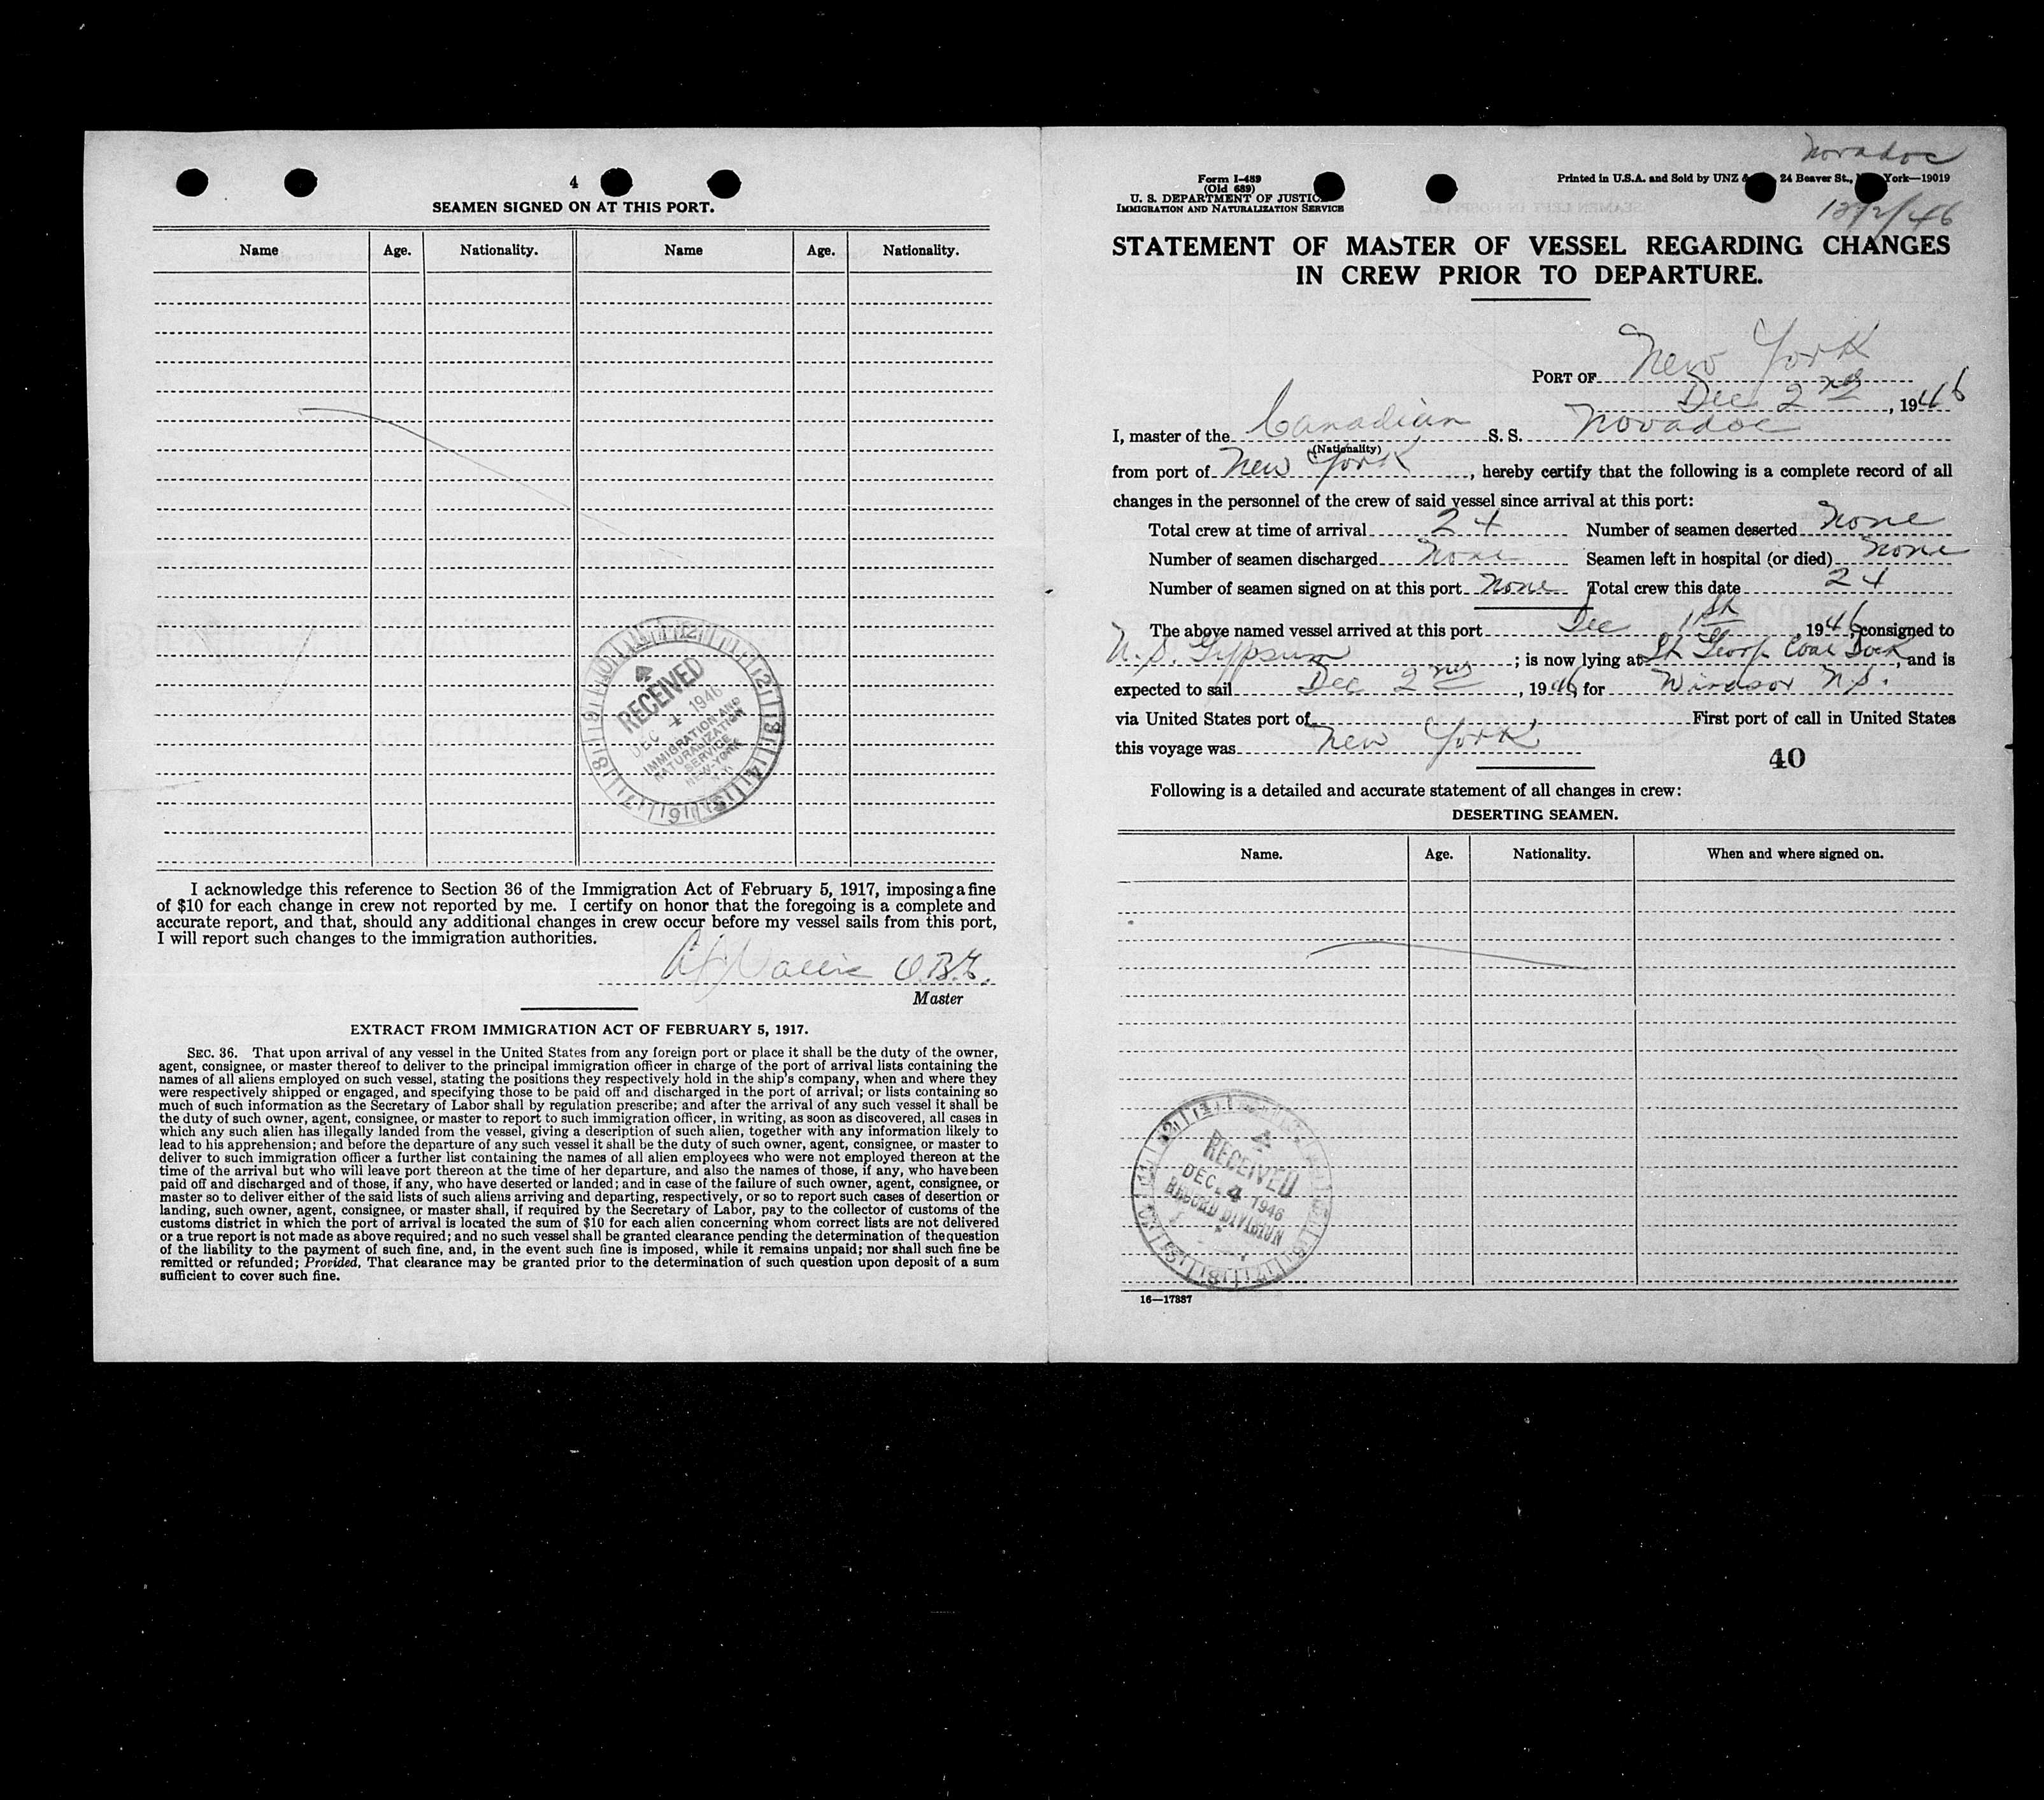 4
SEAMEN SIGNED ON AT THIS PORT.
Name Age. Nationality. Name Age. Nationality.
RECEIVED
DEC 4 1946
IMMIGRATION AND
NATURALIZATION
SERVICE
NEW YORK
I acknowledge this reference to Section 36 of the Immigration Act of February 5, 1917, imposing a fine
of $10 for each change in crew not reported by me. I certify on honor that the foregoing is a complete and
accurate report, and that, should any additional changes in crew occur before my vessel sails from this port,
I will report such changes to the immigration authorities.
O.B.E.
Master
EXTRACT FROM IMMIGRATION ACT OF FEBRUARY 5, 1917.
SEC. 36. That upon arrival of any vessel in the United States from any foreign port or place it shall be the duty of the owner,
agent, consignee, or master thereof to deliver to the principal immigration officer in charge of the port of arrival lists containing the
names of all aliens employed on such vessel, stating the positions they respectively hold in the ship's company, when and where they
were respectively shipped or engaged, and specifying those to be paid off and discharged in the port of arrival; or lists containing so
much of such information as the Secretary of Labor shall by regulation prescribe; and after the arrival of any such vessel it shall be
the duty of such owner, agent, consignee, or master to report to such immigration officer, in writing, as soon as discovered, all cases in
which any such alien has illegally landed from the vessel, giving a description of such alien, together with any information likely to
lead to his apprehension; and before the departure of any such vessel it shall be the duty of such owner, agent, consignee, or master to
deliver to such immigration officer a further list containing the names of all alien employees who were not employed thereon at the
time of the arrival but who will leave port thereon at the time of her departure, and also the names of those, if any, who have been
paid off and discharged and of those, if any, who have deserted or landed; and in case of the failure of such owner, agent, consignee, or
master so to deliver either of the said lists of such aliens arriving and departing, respectively, or so to report such cases of desertion or
landing, such owner, agent, consignee, or master shall, if required by the Secretary of Labor, pay to the collector of customs of the
customs district in which the port of arrival is located the sum of $10 for each alien concerning whom correct lists are not delivered
or a true report is not made as above required; and no such vessel shall be granted clearance pending the determination of the question
of the liability to the payment of such fine, and, in the event such fine is imposed, while it remains unpaid; nor shall such fine be
remitted or refunded; Provided, That clearance may be granted prior to the determination of such question upon deposit of a sum
sufficient to cover such fine.
Novadoc
Form I-489
(Old 689)
U. S. DEPARTMENT OF JUSTICE
IMMIGRATION AND NATURALIZATION SERVICE
Printed in U.S.A. and Sold by UNZ & 24 Beaver St., York—19019
12/2/46
STATEMENT OF MASTER OF VESSEL REGARDING CHANGES
IN CREW PRIOR TO DEPARTURE.
PORT OF New York
Dec 2nd, 1946
I, master of the Canadian S. S. Novadoc
(Nationality)
from port of New York, hereby certify that the following is a complete record of all
changes in the personnel of the crew of said vessel since arrival at this port:
Total crew at time of arrival 24 Number of seamen deserted None
Number of seamen discharged None Seamen left in hospital (or died) None
Number of seamen signed on at this port None Total crew this date 24
The above named vessel arrived at this port Dec 1st 1946, consigned to
U.S. Gypsum; is now lying at St George Coal Dock, and is
expected to sail Dec 2nd, 1946, for Windsor N.S.
via United States port of First port of call in United States
this voyage was New York
40
Following is a detailed and accurate statement of all changes in crew:
DESERTING SEAMEN.
Name. Age. Nationality. When and where signed on.
RECEIVED
DEC 4 1946
RECORD DIVISION
16—17887